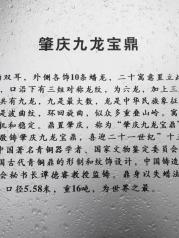 肇庆九龙宝鼎
双耳，外侧各饰10条蟠龙，二十寓意置立
，口沿下有三组对称龙纹，为六龙，加上三
共有九龙，九是最大数，龙是中华民族象征
是波曲纹、环回纹，似众多重叠山岭，寓
和稳定。鼎置肇庆，称为“肇庆九龙宝鼎”
致庆龙宝鼎，喜迎二十一世纪”十
中国著名青铜器学者、国家文物鉴定委员会
国古代青铜鼎的形制和纹饰设计，中国铸造
会秘书长谭德睿教授监铸，鼎身以失蜡法
，口径5.58米，重16吨，为世界之最